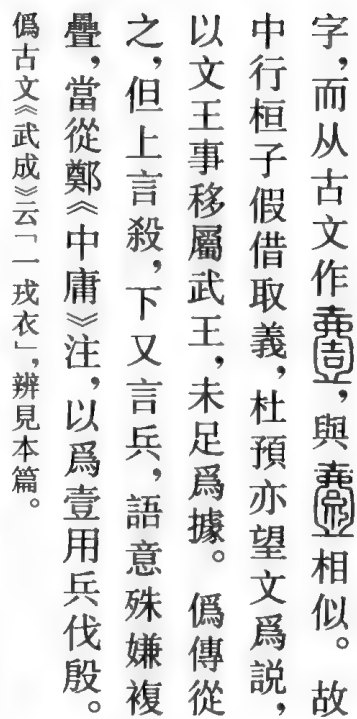 字，而从古文作，與相似。故
中行桓子假借取義，杜預亦望文爲説，
以文王事移屬武王，未足爲據。僞傳從
之，但上言殺，下又言兵，語意殊嫌複
疊，當從鄭《中庸》注，以爲壹用兵伐殷。
僞古文《武成》云「一戎衣」，辨見本篇。